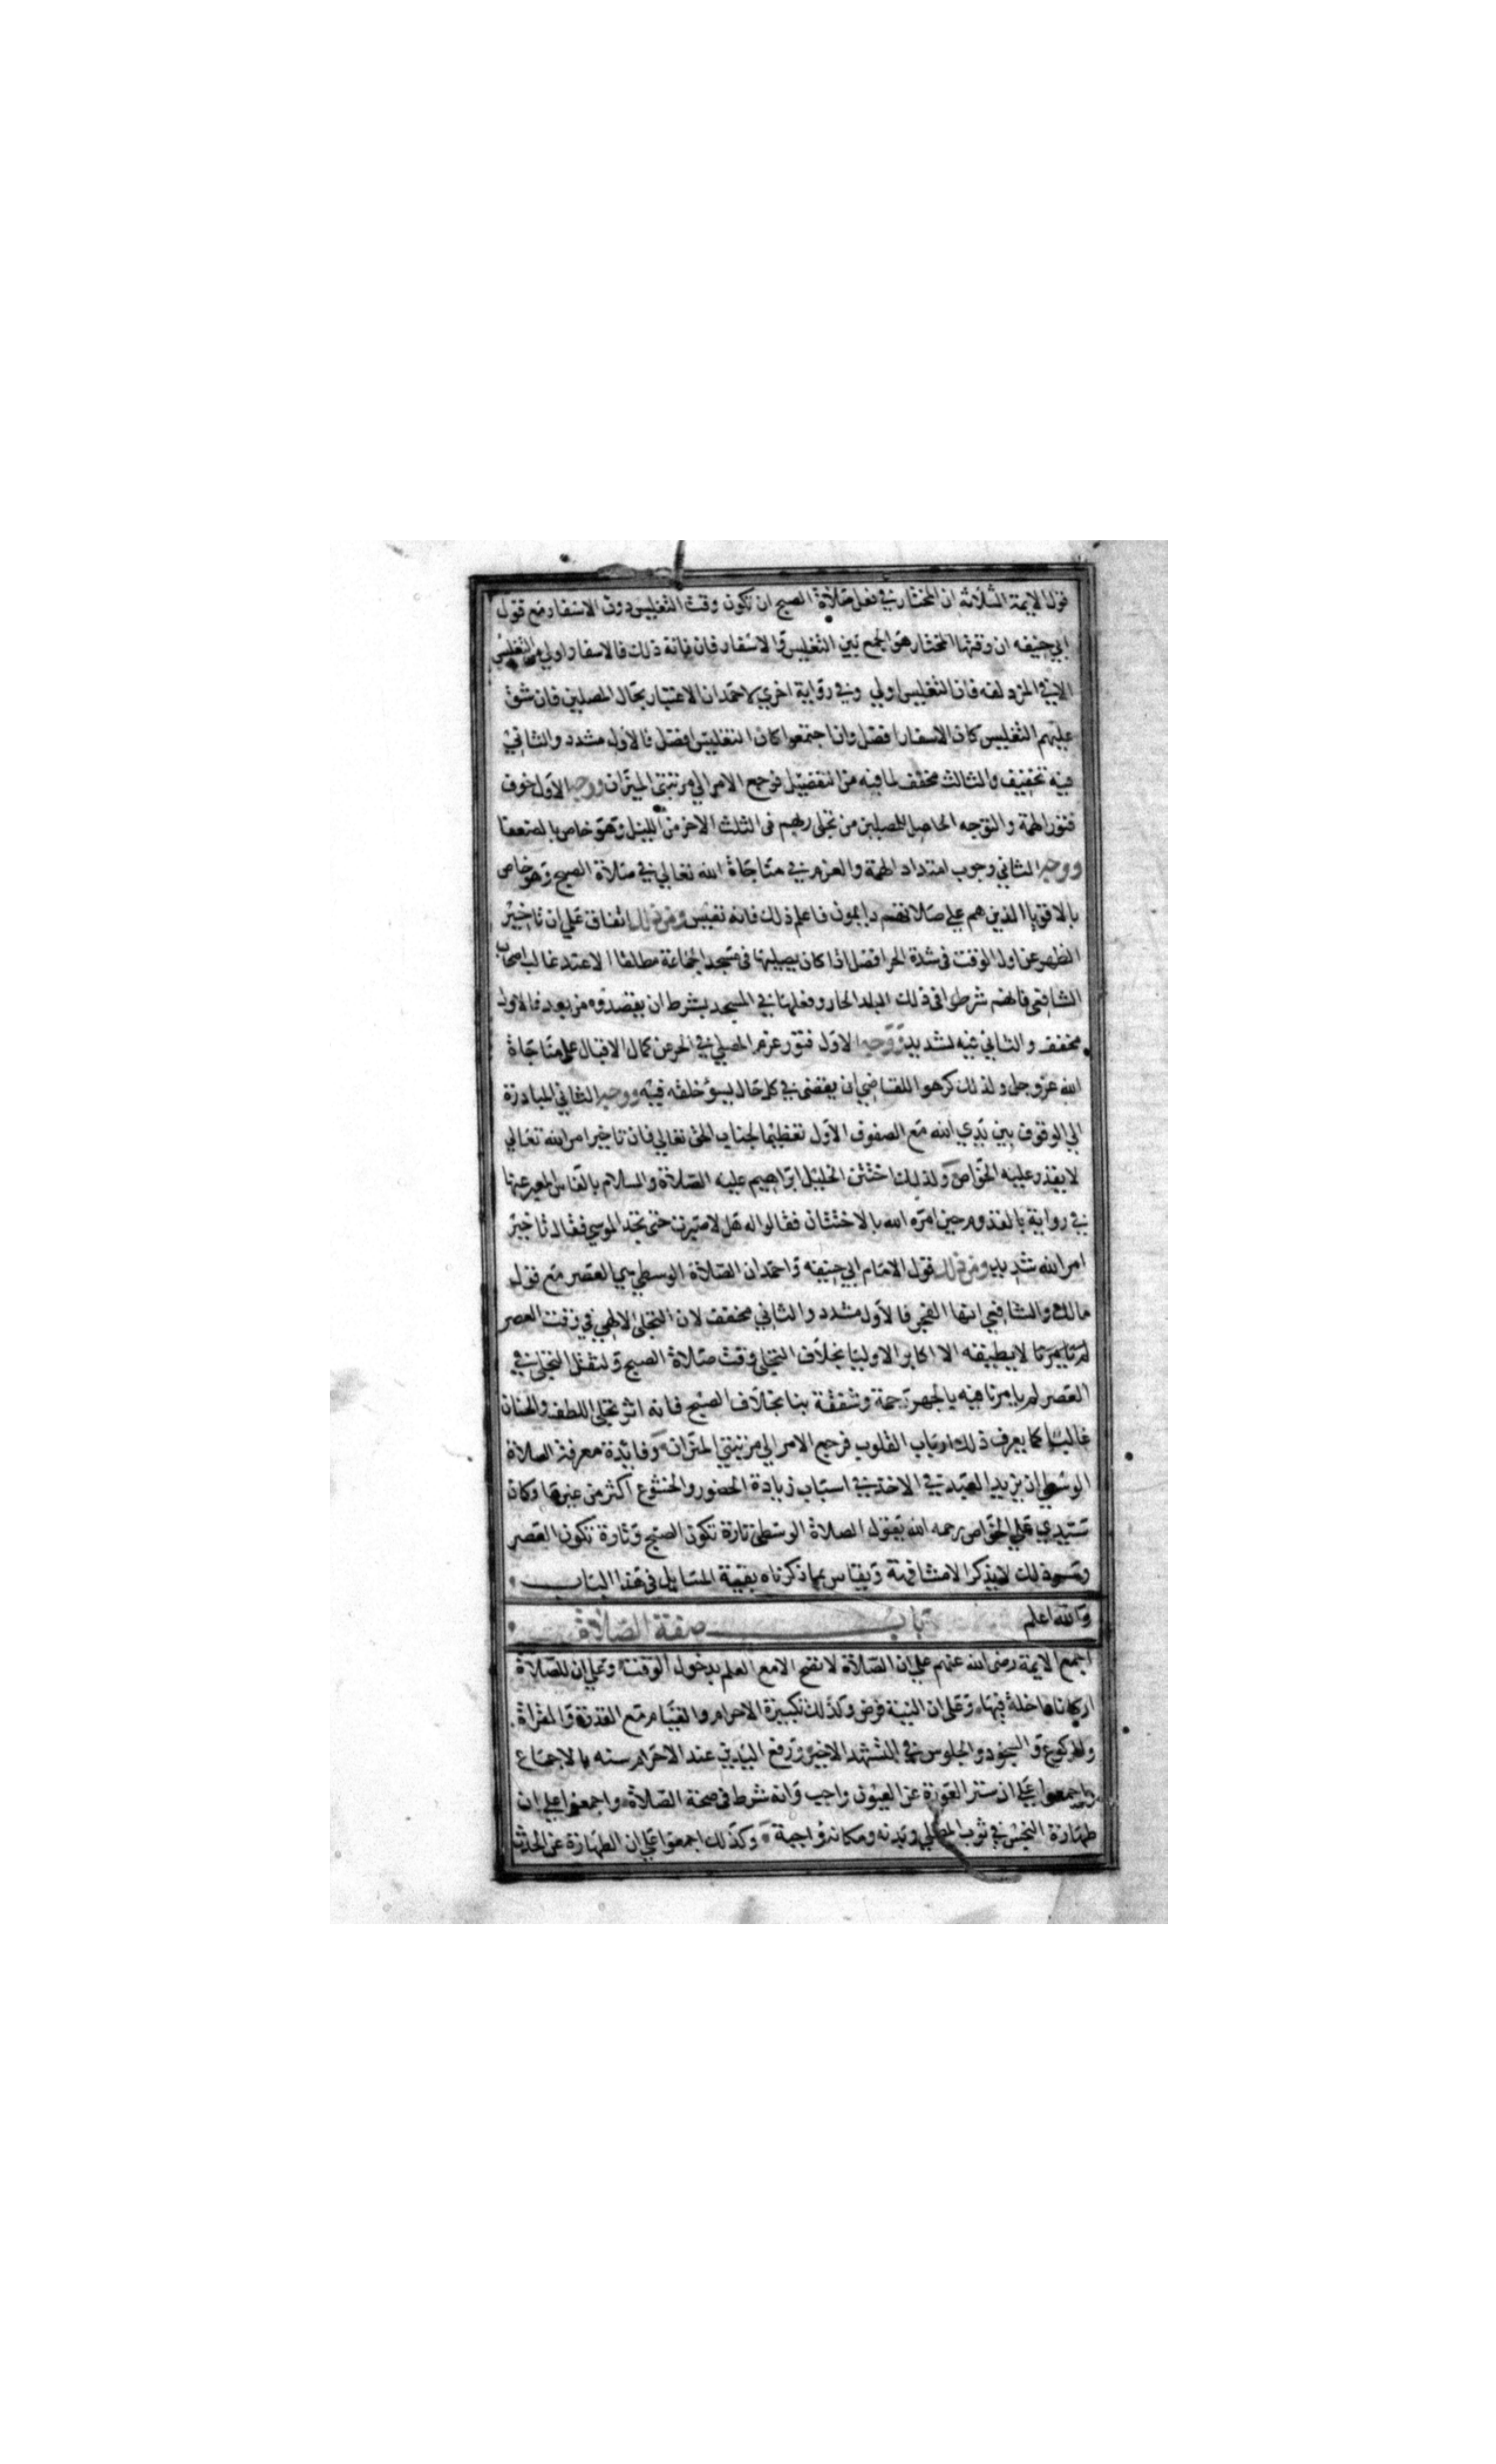 قول الايمة الثلاثة ان المختار في فعل صلاة الصبح ان تكون وقت التغليس دون الاسفار مع قول
ابي حنيفه ان وقتها المختار هو الجمع بين التغليس والاسفار فان فاته ذلك فالاسفار اولي من التغليس
الا في المزدلفه فان التغليس اولي وفي رواية اخري لاحمد ان الاعتبار بحال المصلين فان شق
عليهم التغليس كان الاسفار افضل وان اجتمعوا كان التغليس افضل فالاول مشدد والثاني
فيه تخفيف والثالث مخفف لما فيه من التفصيل فرجع الامر الي مرتبتي الميزان ووجه الاول خوف
فتور الهمة والتوجه الحاصل للمصلين من تجلي ربهم في الثلث الاخر من الليل وهو خاص بالضعفا
ووجه الثاني وجوب امتداد الهمة والعزم في مناجاة الله تعالي في صلاة الصبح وهو خاص
بالاقويا الذين هم علي صلاتهم دايمون فاعلم ذلك فانه نفيس ومن ذلك اتفاق علي ان تاخير
الظهر عن اول الوقت في شدة الحر افضل اذا كان يصليها في مسجد الجماعة مطلقا الا عند غالب اصحاب
الشافعي فانهم شرطوا في ذلك البلد الحار وفعلها في المسجد بشرط ان يقصدوه من بعد فالاول
مخفف والثاني فيه تشديد ووجه الاول فتور عزم المصلي في الحر عن كمال الاقبال علي مناجاة
الله عز وجل ولذلك كرهوا للقاضي ان يقضي في كل حال يسوء خلقه فيه ووجه الثاني المبادرة
الي الوقوف بين يدي الله مع الصفوف الاول تعظيما لجناب الحق تعالي فان تاخير امر الله تعالي
لا يقدر عليه الخواص ولذلك اختتن الخليل ابراهيم عليه الصلاة والسلام بالفاس المعبر عنها
في رواية بالقدوم حين امره الله بالاختتان فقالوا له هل لا صبرت حتي تجد الموسي فقال تاخير
امر الله شديد ومن ذلك قول الامام ابي حنيفه واحمد ان الصلاة الوسطي هي العصر مع قول
مالك والشافعي انها الفجر فالاول مشدد والثاني مخفف لان التجلي الالهي في وقت العصر
لا يطيقه الا اكابر الاوليا بخلاف التجلي وقت صلاة الصبح ولثقل التجلي في
العصر لم يامرنا فيه بالجهر رحمة وشفقة بنا بخلاف الصبح فانه اثر تجلي اللطف والحنان
غالبا كما يعرف ذلك ارباب القلوب فرجع الامر الي مرتبتي الميزان وفايدة معرفة الصلاة
الوسطي ان يزيد العبد في الاخذ في اسباب زيادة الحضور والخشوع اكثر من غيرها وكان
سيدي علي الخواص رحمه الله يقول الصلاة الوسطي تارة تكون الصبح وتارة تكون العصر
وسر ذلك لا يذكر الا مشافهة ويقاس بما ذكرناه بقية المسايل في هذا الباب
والله اعلم باب صفة الصلاة
اجمع الايمة رضي الله عنهم علي ان الصلاة لا تصح الا مع العلم بدخول الوقت وعلي ان للصلاة
اركانا داخلة فيها وعلي ان النية فرض وكذلك تكبيرة الاحرام والقيام مع القدرة والقراة
والركوع والسجود والجلوس في التشهد الاخير ورفع اليدين عند الاحرام سنه بالاجماع
واجمعوا علي ان ستر العورة عن العيون واجب وانه شرط في صحة الصلاة واجمعوا علي ان
طهارة النجس في ثوب المصلي وبدنه ومكانه واجبة وكذلك اجمعوا علي ان الطهارة عن الحدث